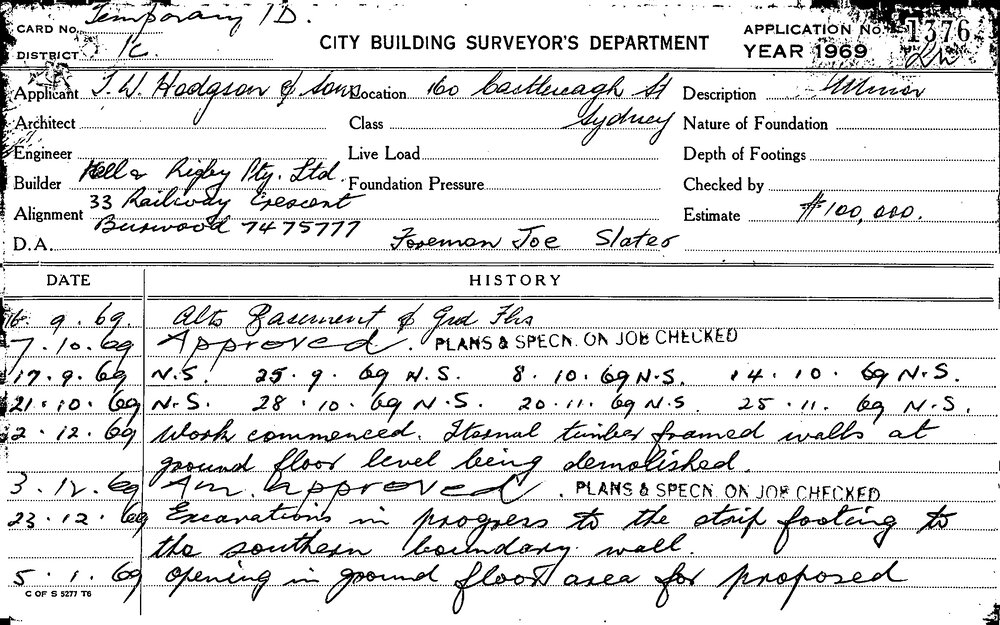 CARD No. Temporary I D.
DISTRICT 1c.
CITY BUILDING SURVEYOR'S DEPARTMENT
APPLICATION No. 1376
YEAR 1969
Applicant T. W. Hodgson & Sons Location 160 Castlereagh St Description Minor
Architect Class Sydney Nature of Foundation
Engineer Live Load Depth of Footings
Builder Kell & Rigby Pty. Ltd. Foundation Pressure Checked by
Alignment 33 Railway Crescent Estimate $100,000.
Burwood 74 75777
D.A. Foreman Joe Slater
DATE HISTORY
16. 9. 69. Alts Basement & Grd Flrs
7.10.69 Approved. PLANS & SPECN. ON JOB CHECKED
17.9.69 N.S. 25.9.69 N.S. 8.10.69 N.S. 14.10.69 N.S.
21.10.69 N.S. 28.10.69 N.S. 20.11.69 N.S. 25.11.69 N.S.
2.12.69 Work commenced. Iternal timber framed walls at
ground floor level being demolished.
3.12.69 Am. Approved. PLANS & SPECN. ON JOB CHECKED
23.12.69 Excavations in progress to the strip footing to
the southern boundary wall.
5.1.69 Opening in ground floor area for proposed
C OF S 5277 T6